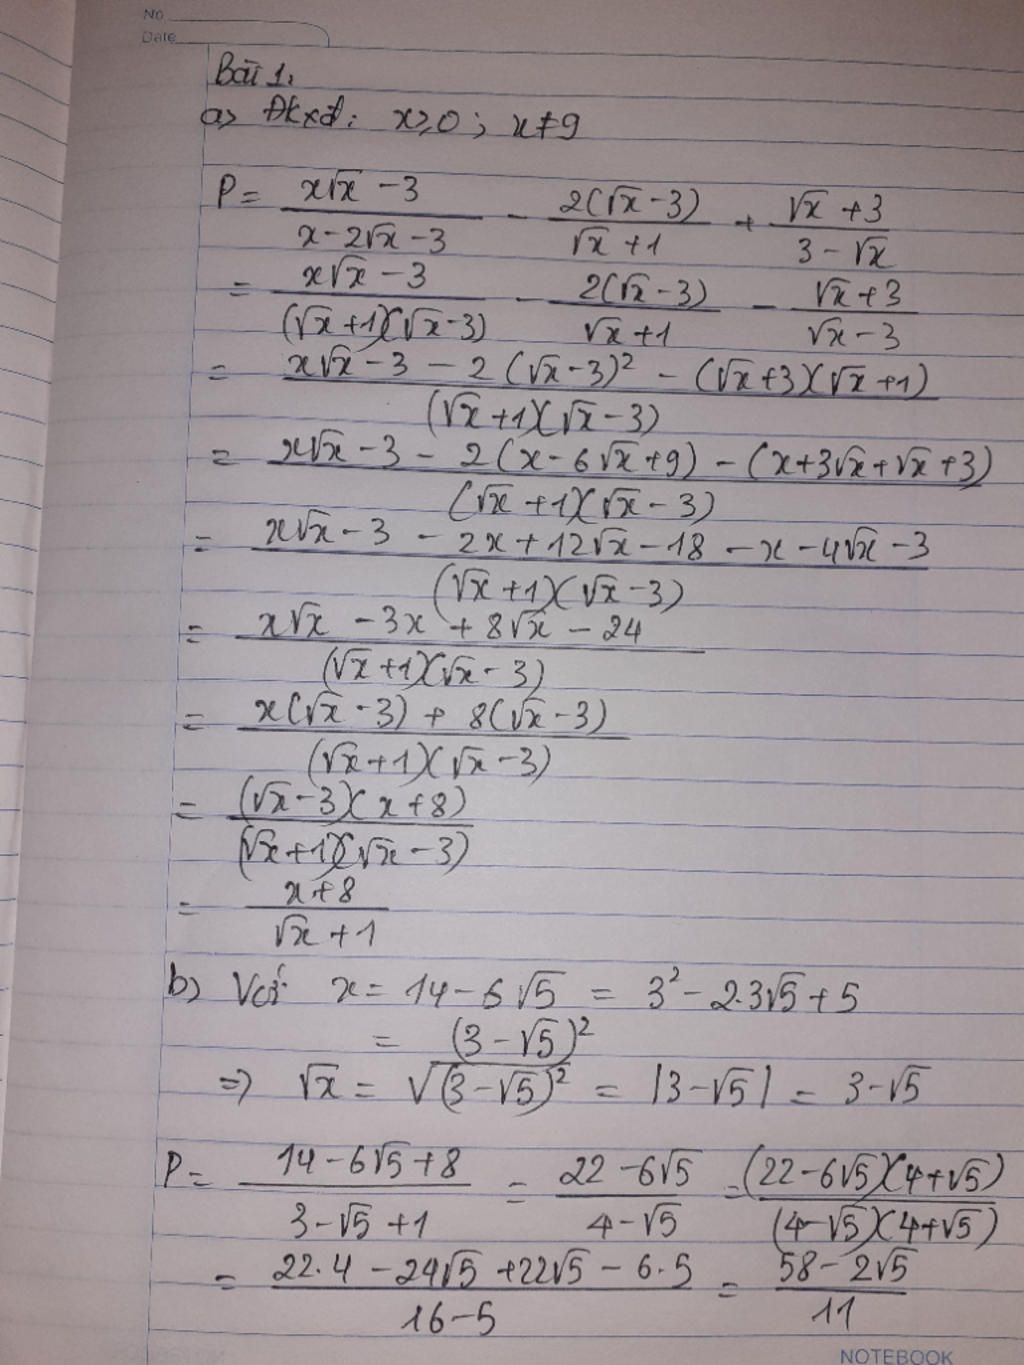 No
Date
Bài 1.
a) Đkxđ: x ≥ 0 ; x ≠ 9
P = (x√x - 3)/(x - 2√x - 3) - 2(√x - 3)/(√x + 1) + (√x + 3)/(3 - √x)
= (x√x - 3)/((√x + 1)(√x - 3)) - 2(√x - 3)/(√x + 1) - (√x + 3)/(√x - 3)
= (x√x - 3 - 2(√x - 3)² - (√x + 3)(√x + 1))/((√x + 1)(√x - 3))
= (x√x - 3 - 2(x - 6√x + 9) - (x + 3√x + √x + 3))/((√x + 1)(√x - 3))
= (x√x - 3 - 2x + 12√x - 18 - x - 4√x - 3)/((√x + 1)(√x - 3))
= (x√x - 3x + 8√x - 24)/((√x + 1)(√x - 3))
= (x(√x - 3) + 8(√x - 3))/((√x + 1)(√x - 3))
= ((√x - 3)(x + 8))/((√x + 1)(√x - 3))
= (x + 8)/(√x + 1)
b) Với x = 14 - 6√5 = 3² - 2.3√5 + 5
= (3 - √5)²
=> √x = √(3 - √5)² = |3 - √5| = 3 - √5
P = (14 - 6√5 + 8)/(3 - √5 + 1) = (22 - 6√5)/(4 - √5) = ((22 - 6√5)(4 + √5))/((4 - √5)(4 + √5))
= (22.4 - 24√5 + 22√5 - 6.5)/(16 - 5) = (58 - 2√5)/11
NOTEBOOK